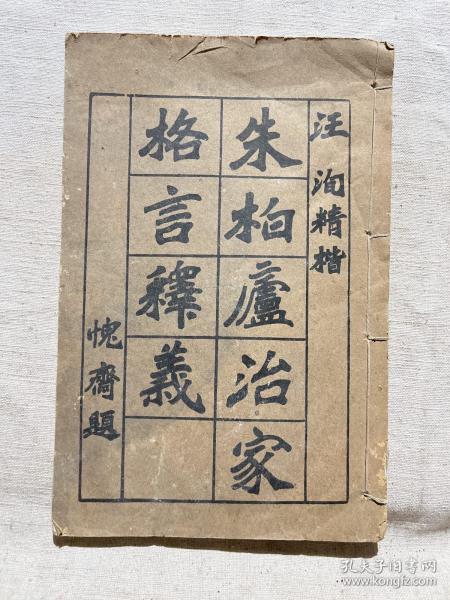 汪洵精楷
朱柏廬治家
格言釋義
愧齋題
孔夫子旧书网
www.kongfz.com